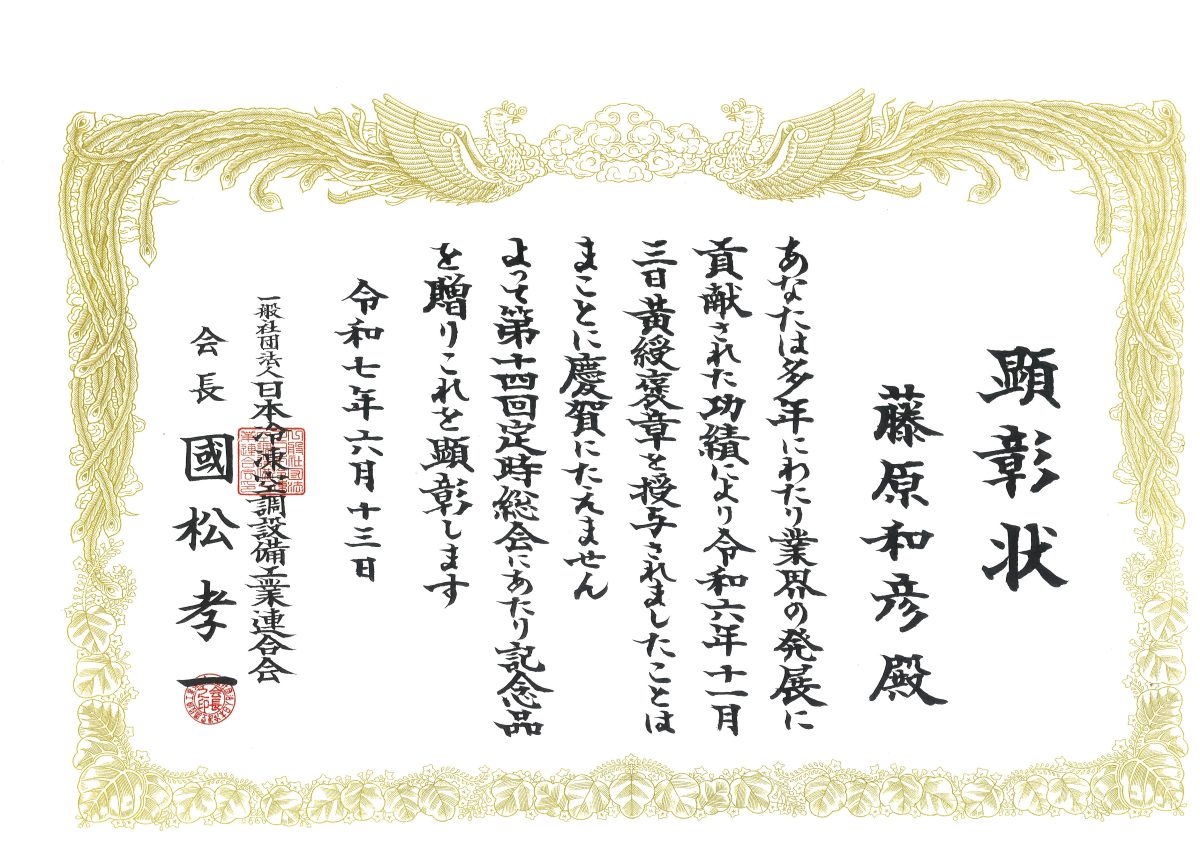 顕彰状
藤原和彦殿
あなたは多年にわたり業界の発展に
貢献された功績により令和六年十一月
三日黄綬褒章を授与されましたことは
まことに慶賀にたえません
よって第十四回定時総会にあたり記念品
を贈りこれを顕彰します
令和七年六月十三日
一般社団法人日本冷凍空調設備工業連合会
会長 國松孝一